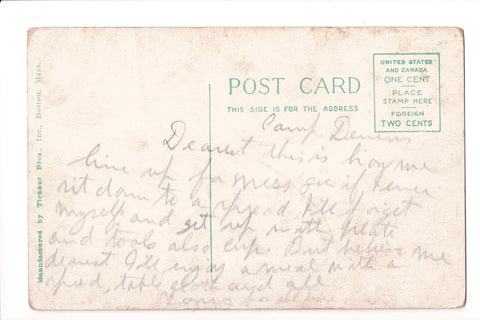 Manufactured by Tichnor Bros., Inc., Boston, Mass.
POST CARD
THIS SIDE IS FOR THE ADDRESS
UNITED STATES
AND CANADA
ONE CENT
PLACE
STAMP HERE
FOREIGN
TWO CENTS
Camp Devens
Dearest this is how we
line up for mess gee if I ever
sit down to a spread I'll forget
myself and get up with plate
and tools also cup. But believe me
dearest I'll enjoy a meal with a
spread, table cloth and all
Yours for